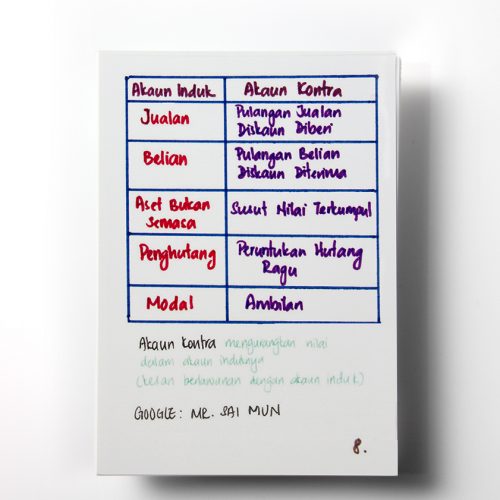 Akaun Induk Akaun Kontra
Jualan
Pulangan Jualan
Diskaun Diberi
Belian
Pulangan Belian
Diskaun Diterima
Aset Bukan
Semasa
Susut Nilai Terkumpul
Penghutang
Peruntukan Hutang
Ragu
Modal
Ambilan
Akaun Kontra mengurangkan nilai
dalam akaun induknya
(kesan berlawanan dengan akaun induk)
GOOGLE: MR. SAI MUN
8.